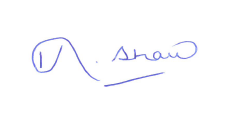 D. Shaw